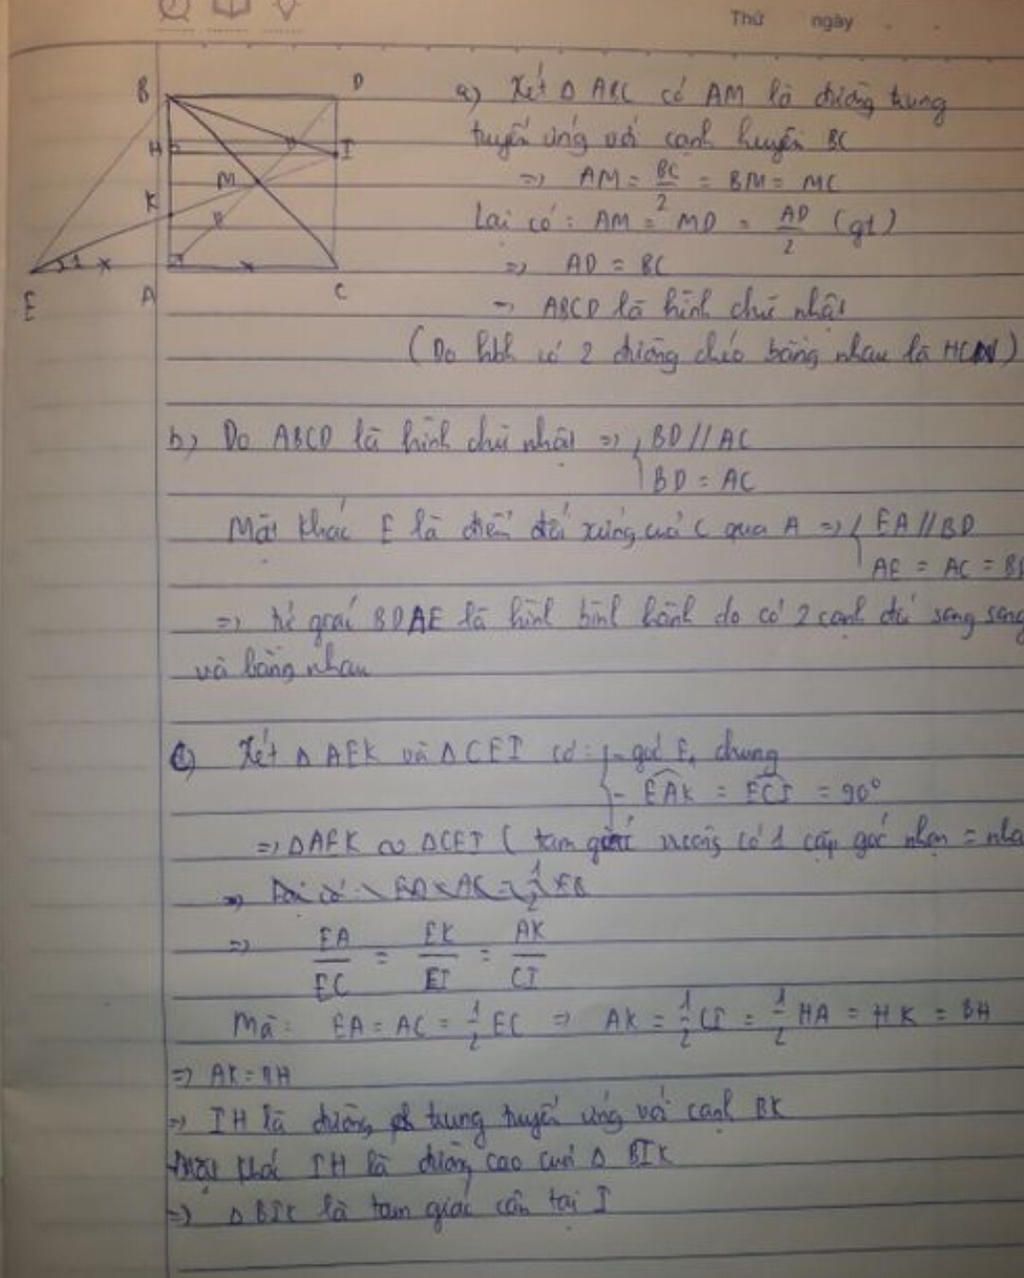 Thứ ngày
B D
H I
M
K
E A C
a) Xét Δ ABC có AM là đường trung
tuyến ứng với cạnh huyền BC
=> AM = BC/2 = BM = MC
Lại có: AM = MD = AD/2 (gt)
=> AD = BC
=> ABCD là hình chữ nhật
(Do hbh có 2 đường chéo bằng nhau là HCN)
b) Do ABCD là hình chữ nhật => { BD // AC
BD = AC
Mặt khác E là điểm đối xứng của C qua A => { EA // BD
AE = AC = BD
=> tứ giác BDAE là hình bình hành do có 2 cạnh đối song song
và bằng nhau
c) Xét Δ AEK và Δ CEI có: { - góc E1 chung
- EAK = ECI = 90°
=> ΔAEK ∽ ΔCEI ( tam giác vuông có 1 cặp góc nhọn = nha
=> EA/EC = EK/EI = AK/CI
Mà: EA = AC = 1/2 EC => AK = 1/2 CI = 1/2 HA = HK = BH
=> AK = BH
=> IH là đường trung tuyến ứng với cạnh BK
Mặt khác IH là đường cao của Δ BIK
=> Δ BIK là tam giác cân tại I